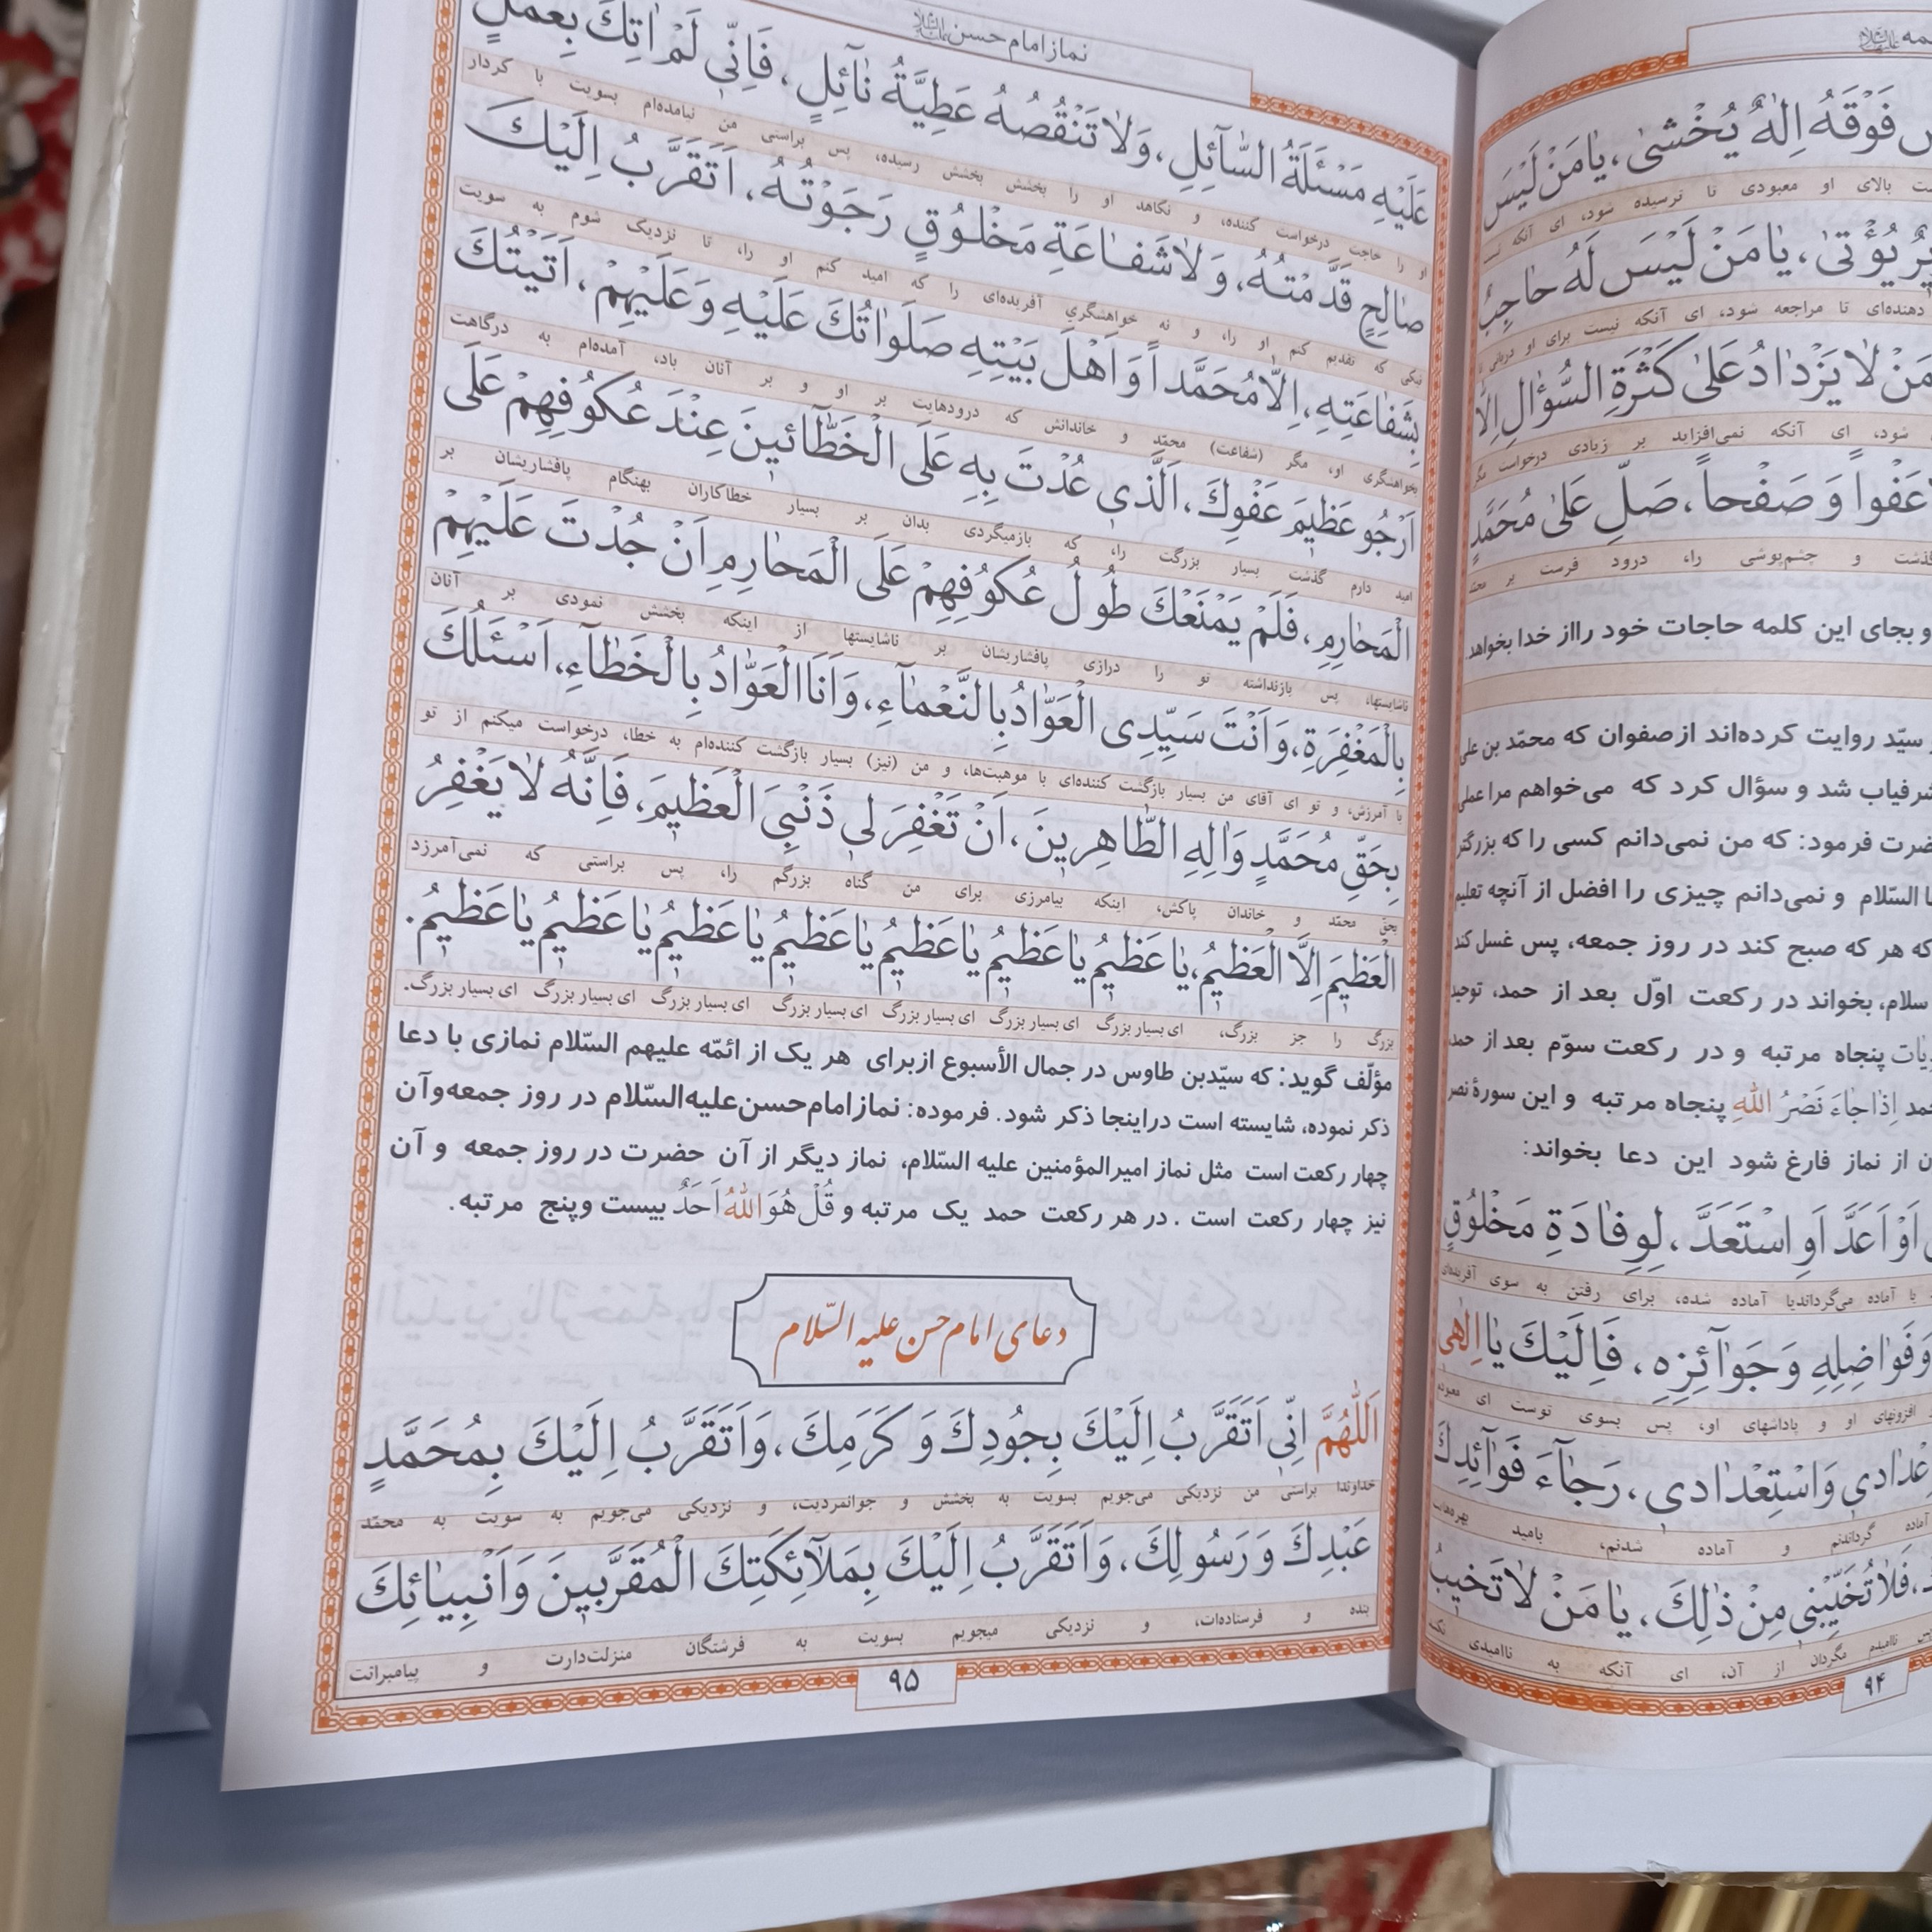 مه علیهاالسلام
فَوْقَهُ اِلٰهٌ يُخْشىٰ، يٰا مَنْ لَيْسَ
بالای او معبودی تا ترسیده شود، ای آنکه نیست
يُؤْتىٰ، يٰا مَنْ لَيْسَ لَهُ حٰاجِبٌ
دهنده‌ای تا مراجعه شود، ای آنکه نیست برای او دربانی
مَنْ لٰا يَزْدٰادُ عَلىٰ كَثْرَةِ السُّؤٰالِ اِلّٰا
شود، ای آنکه نمی‌افزاید بر زیادی درخواست مگر
عَفْوا وَ صَفْحاً، صَلِّ عَلىٰ مُحَمَّدٍ
گذشت و چشم‌پوشی را، درود فرست بر محمّد
و بجای این کلمه حاجات خود رااز خدا بخواهد.
سیّد روایت کرده‌اند از صفوان که محمّد بن علی
شرفیاب شد و سؤال کرد که می‌خواهم مرا عملی
حضرت فرمود: که من نمی‌دانم کسی را که بزرگتر
السّلام و نمی‌دانم چیزی را افضل از آنچه تعلیم
که هر که صبح کند در روز جمعه، پس غسل کند
سلام، بخواند در رکعت اوّل بعد از حمد، توحید
پنجاه مرتبه و در رکعت سوّم بعد از حمد
حمد اِذٰا جٰاءَ نَصْرُ اللّٰهِ پنجاه مرتبه و این سورهٔ نصر
از نماز فارغ شود این دعا بخواند:
اَوْ اَعَدَّ اَوِ اسْتَعَدَّ، لِوِفٰادَةِ مَخْلُوقٍ
یا آماده می‌گرداندیا آماده شده، برای رفتن به سوی آفریده‌ای
وَفَوٰاضِلِهِ وَ جَوٰآئِزِهِ، فَاِلَيْكَ يٰا اِلٰهِى
افزونیهای او و پاداشهای او، پس بسوی توست ای معبودم
وَاسْتِعْدٰادي، رَجٰآءَ فَوٰآئِدِكَ
آماده گرداندنم و آماده شدنم، بامید بهره‌هایت
فَلٰا تُخَيِّبْني مِنْ ذٰلِكَ، يٰا مَنْ لٰا تَخيبُ
ناامیدم مگردان از آن، ای آنکه به ناامیدی
۹۴
نماز امام حسن علیه‌السلام
عَلَيْهِ مَسْئَلَةُ السّٰآئِلِ، وَلٰا تَنْقُصُهُ عَطِيَّةُ نٰآئِلٍ، فَاِنّي لَمْ اٰتِكَ بِعَمَلٍ
او را حاجت درخواست کننده، و نکاهد او را بخشش بخشش رسیده، پس براستی من نیامده‌ام بسویت با کردار
صٰالِحٍ قَدَّمْتُهُ، وَ لٰا شَفٰاعَةِ مَخْلُوقٍ رَجَوْتُهُ، اَتَقَرَّبُ اِلَيْكَ
نیکی که تقدیم کنم او را، و نه خواهشگری آفریده‌ای را که امید کنم او را، تا نزدیک شوم به سویت
بِشَفٰاعَتِهِ، اِلّٰا مُحَمَّداً وَ اَهْلَ بَيْتِهِ صَلَوٰاتُكَ عَلَيْهِ وَ عَلَيْهِمْ، اَتَيْتُكَ
بخواهشگری او، مگر (شفاعت) محمّد و خاندانش که درودهایت بر او و بر آنان باد، آمده‌ام به درگاهت
اَرْجُو عَظيمَ عَفْوِكَ، اَلَّذي عُدْتَ بِهِ عَلَى الْخَطّٰآئينَ عِنْدَ عُكُوفِهِمْ عَلَى
امید دارم گذشت بسیار بزرگت را، که بازمیگردی بدان بر بسیار خطاکاران بهنگام پافشاریشان بر
الْمَحٰارِمِ، فَلَمْ يَمْنَعْكَ طُولُ عُكُوفِهِمْ عَلَى الْمَحٰارِمِ اَنْ جُدْتَ عَلَيْهِمْ
ناشایستها، پس بازنداشته تو را درازی پافشاریشان بر ناشایستها از اینکه بخشش نمودی بر آنان
بِالْمَغْفِرَةِ، وَ اَنْتَ سَيِّدِى الْعَوّٰادُ بِالنَّعْمٰآءِ، وَ اَنَا الْعَوّٰادُ بِالْخَطٰآءِ، اَسْئَلُكَ
با آمرزش، و تو ای آقای من بسیار بازگشت کننده‌ای با موهبت‌ها، و من (نیز) بسیار بازگشت کننده‌ام به خطا، درخواست میکنم از تو
بِحَقِّ مُحَمَّدٍ وَ اٰلِهِ الطّٰاهِرينَ، اَنْ تَغْفِرَ لي ذَنْبِيَ الْعَظيمَ، فَاِنَّهُ لٰا يَغْفِرُ
بحق محمّد و خاندان پاکش، اینکه بیامرزی برای من گناه بزرگم را، پس براستی که نمی‌آمرزد
الْعَظيمَ اِلَّا الْعَظيمُ، يٰا عَظيمُ يٰا عَظيمُ يٰا عَظيمُ يٰا عَظيمُ يٰا عَظيمُ يٰا عَظيمُ يٰا عَظيمُ.
بزرگ را جز بزرگ، ای بسیار بزرگ ای بسیار بزرگ ای بسیار بزرگ ای بسیار بزرگ ای بسیار بزرگ ای بسیار بزرگ ای بسیار بزرگ.
مؤلّف گوید: که سیّدبن طاوس در جمال الأسبوع ازبرای هر یک از ائمّه علیهم السّلام نمازی با دعا
ذکر نموده، شایسته است دراینجا ذکر شود. فرموده: نماز امام‌حسن‌علیه‌السّلام در روز جمعه‌و‌آن
چهار رکعت است مثل نماز امیرالمؤمنین علیه السّلام، نماز دیگر از آن حضرت در روز جمعه و آن
نیز چهار رکعت است . در هر رکعت حمد یک مرتبه و قُلْ هُوَ اللّٰهُ اَحَدٌ بیست وپنج مرتبه.
دعای امام حسن علیه السّلام
اَللّٰهُمَّ اِنّي اَتَقَرَّبُ اِلَيْكَ بِجُودِكَ وَ كَرَمِكَ، وَ اَتَقَرَّبُ اِلَيْكَ بِمُحَمَّدٍ
خداوندا براستی من نزدیکی می‌جویم بسویت به بخشش و جوانمردیت، و نزدیکی می‌جویم به سویت به محمّد
عَبْدِكَ وَ رَسُولِكَ، وَ اَتَقَرَّبُ اِلَيْكَ بِمَلٰآئِكَتِكَ الْمُقَرَّبينَ وَ اَنْبِيٰائِكَ
بنده و فرستاده‌ات، و نزدیکی میجویم بسویت به فرشتگان منزلت‌دارت و پیامبرانت
۹۵